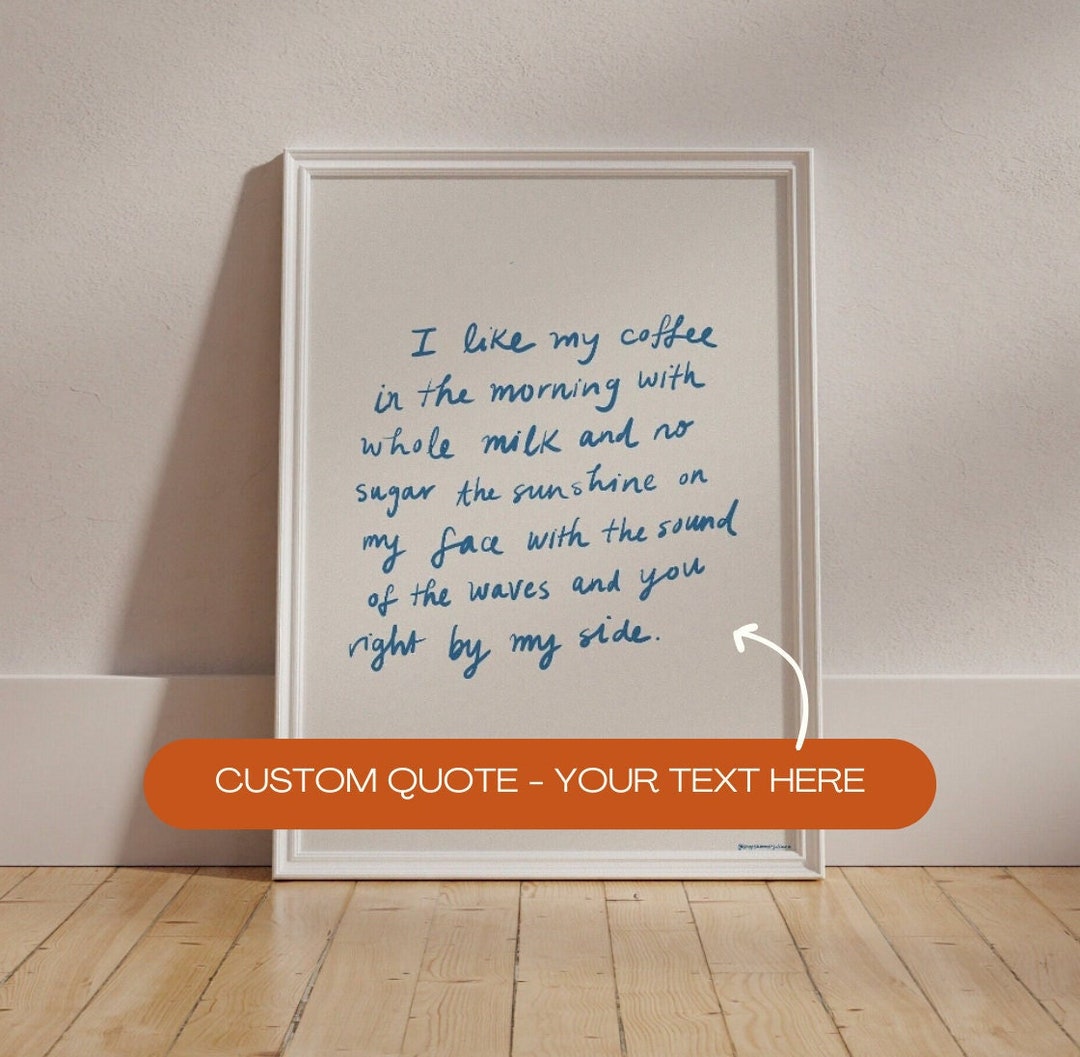 I like my coffee
in the morning with
whole milk and no
sugar the sunshine on
my face with the sound
of the waves and you
right by my side.
CUSTOM QUOTE - YOUR TEXT HERE